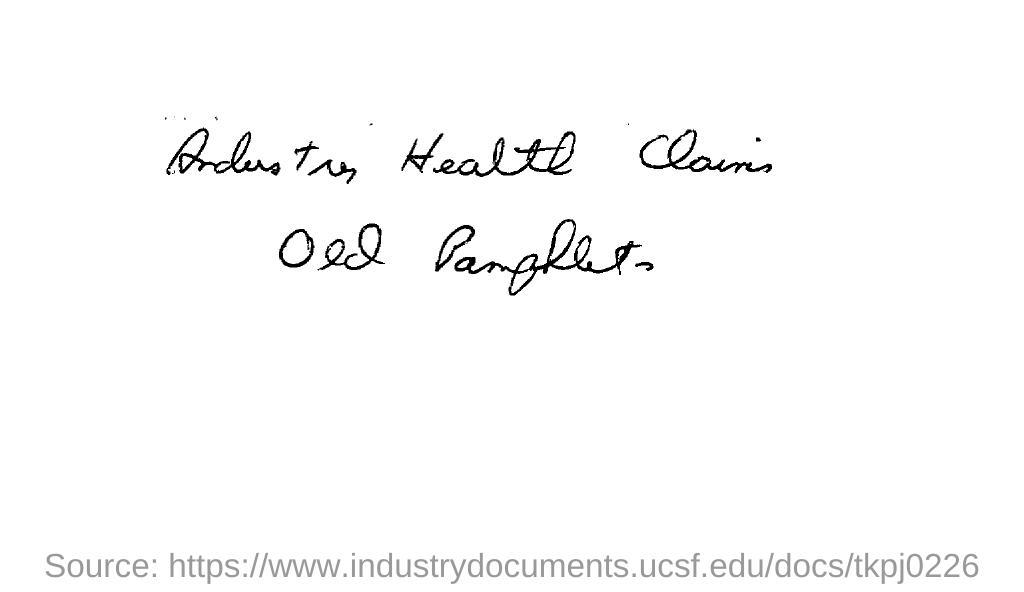 Industry Health Claims
Old Pamphlets
Source: https://www.industrydocuments.ucsf.edu/docs/tkpj0226